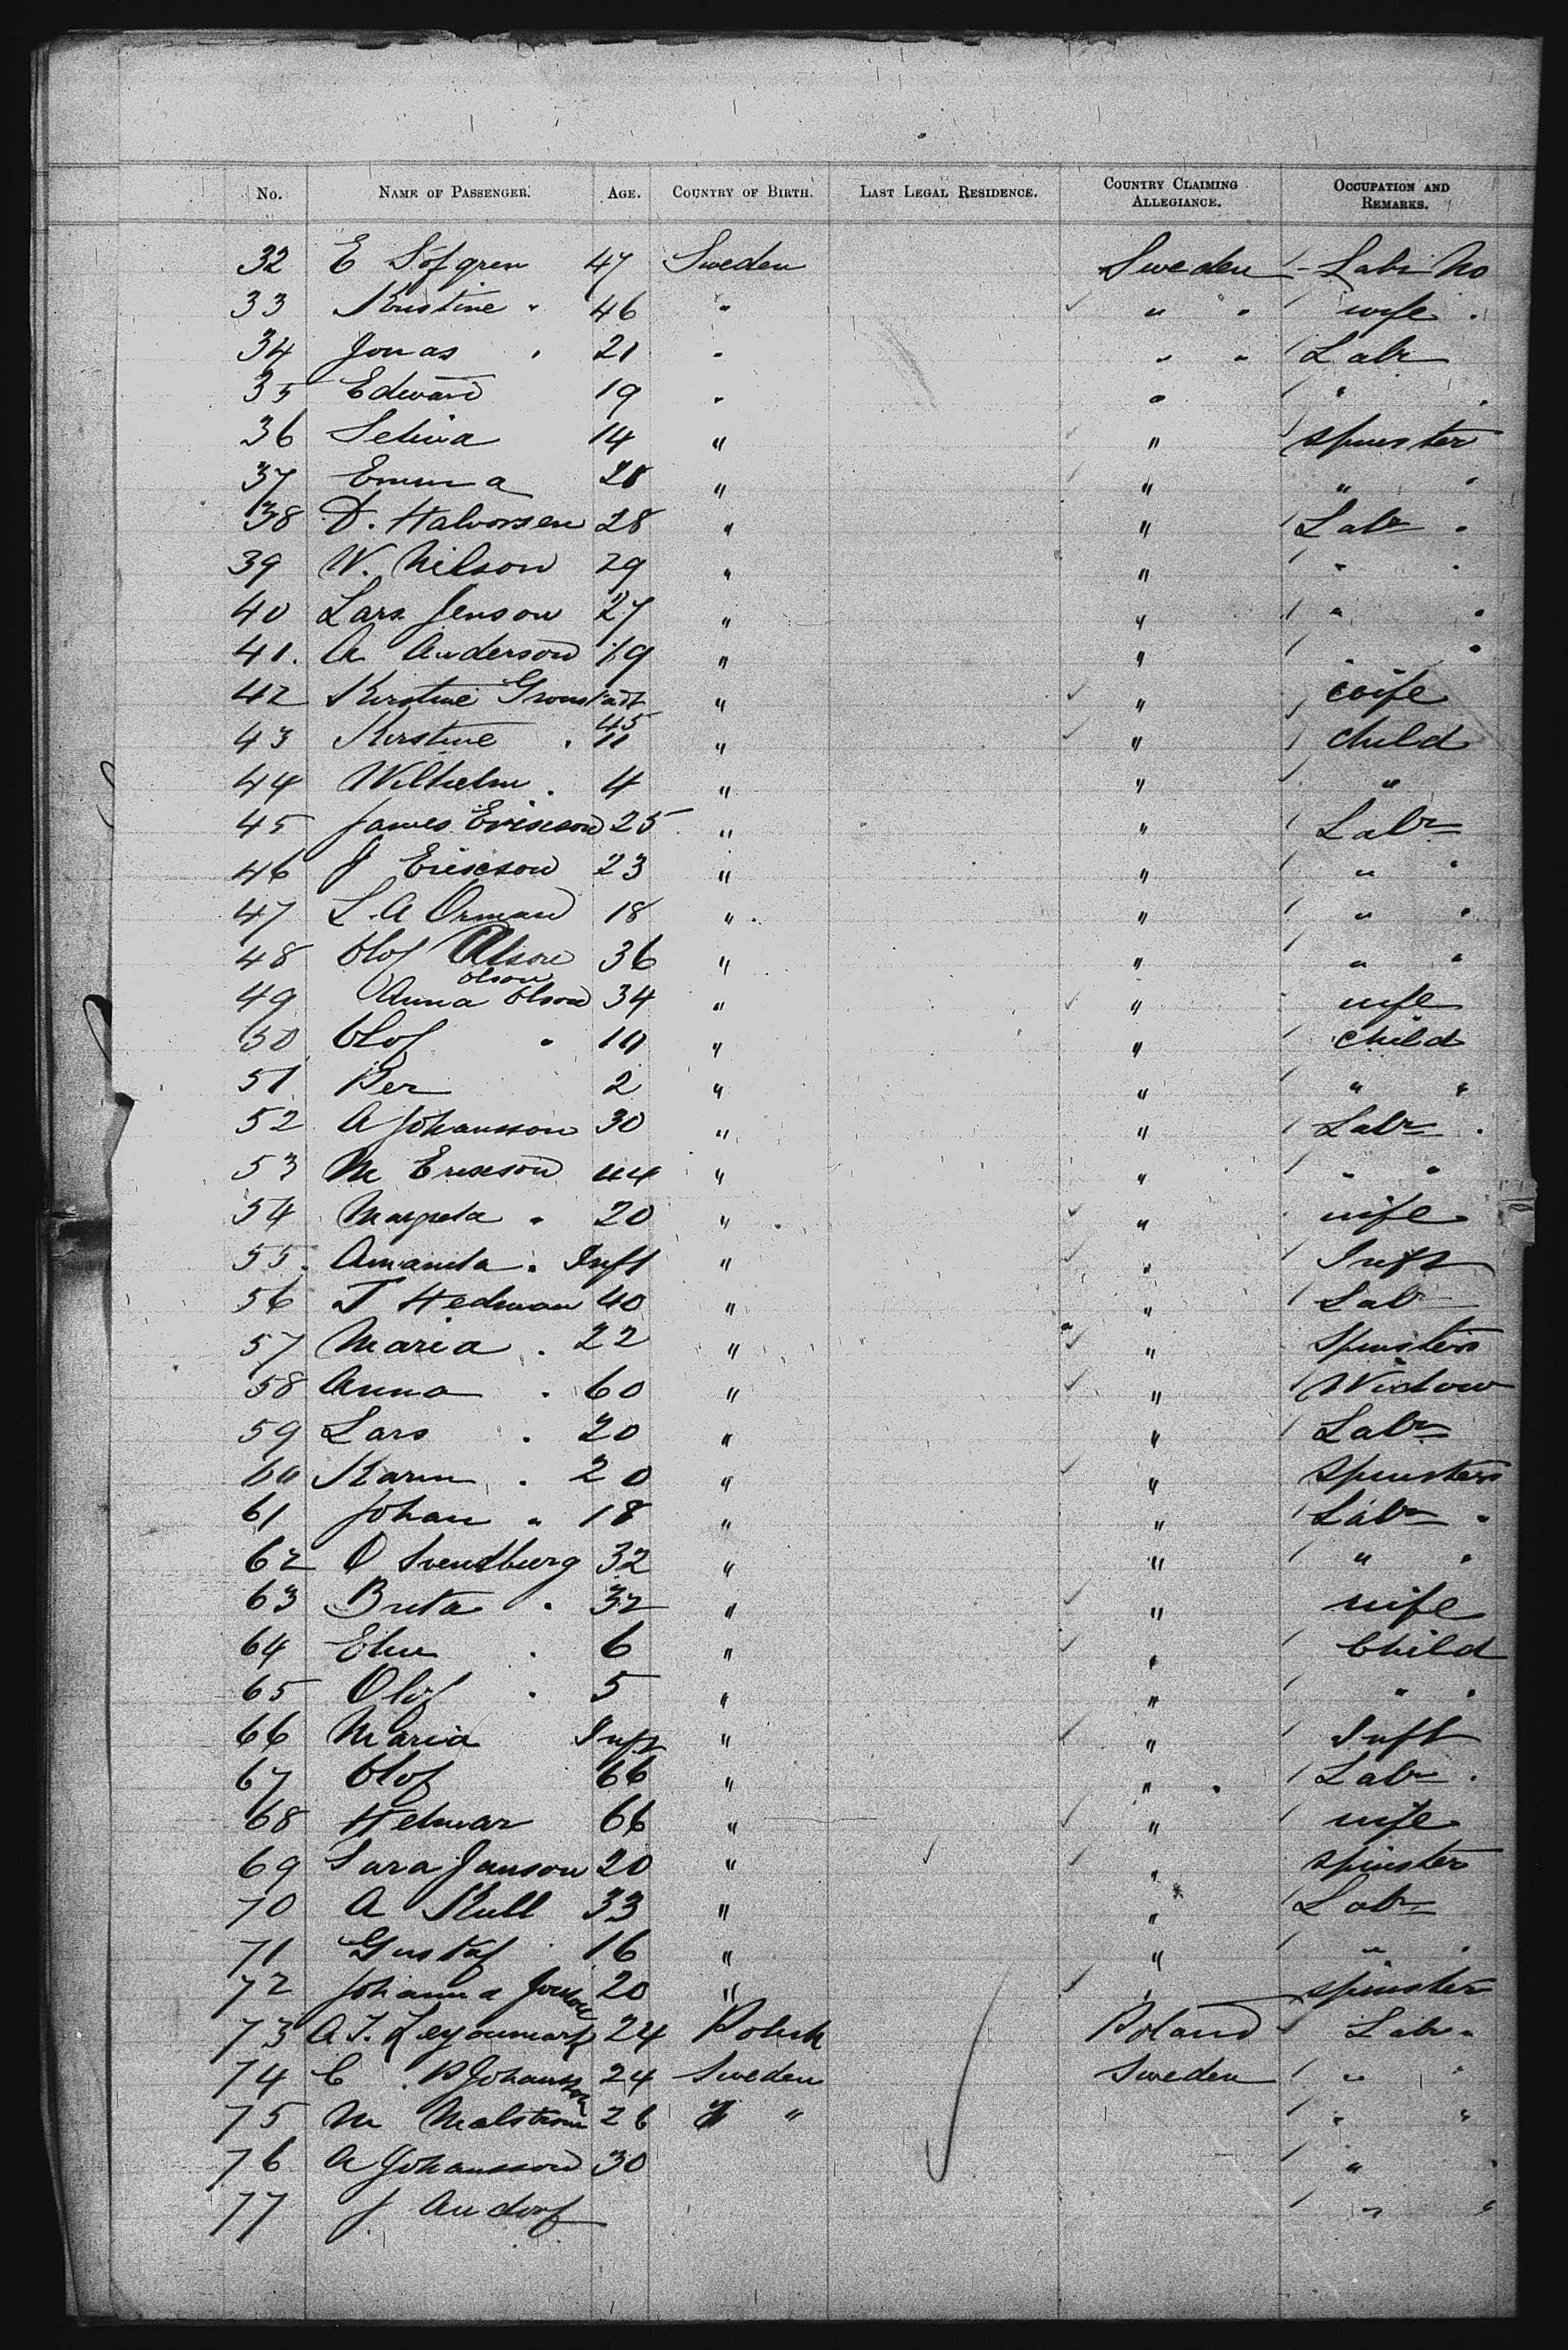 No. NAME OF PASSENGER. AGE. COUNTRY OF BIRTH. LAST LEGAL RESIDENCE. COUNTRY CLAIMING ALLEGIANCE. OCCUPATION AND REMARKS.
32 E Sofgren 47 Sweden Sweden Labr No
33 Kristine " 46 " " " wife "
34 Jonas " 21 " " " Labr
35 Edward 19 " " " "
36 Selina 14 " " spinster
37 Emma 28 " " " "
38 D. Halvorsen 28 " " Labr "
39 N. Nilson 29 " " " "
40 Lars Jenson 27 " " " "
41. A Anderson 19 " " " "
42 Kirstine 45 " " wife
43 Kirstine " 11 " " child
44 Wilhelm " 4 " " "
45 James Ericson 25 " " Labr
46 J Ericson 23 " " " "
47 L. A Orman 18 " " " "
48 Olof Olson 36 " " " "
49 Anna Olson 34 " " wife
50 Olof " 10 " " child
51 Per 2 " " " "
52 A Johansson 30 " " Labr "
53 M Ericson 44 " " " "
54 Margreta " 20 " " wife
55. Amanda " Inft " " Inft
56 T Hedman 40 " " Labr
57 Maria " 22 " " spinster
58 Anna " 60 " " Widow
59 Lars " 20 " " Labr
60 Karin " 20 " " spinster
61 Johan " 18 " " Labr "
62 O Svendburg 32 " " " "
63 Brita " 32 " " wife
64 " 6 " " Child
65 Olof " 5 " " " "
66 Maria Inft " " Inft
67 Olof 66 " " Labr "
68 66 " " wife
69 Sara Janson 20 " " spinster
70 A Kull 33 " " Labr
71 Gustaf 16 " " " "
72 Johanna 20 " " spinster
73 A. J. 24 Polish Poland Labr "
74 C. P Johansson 24 Sweden Sweden " "
75 M Malstrom 26 " " "
76 A Johansson 30 " "
77 J Andorf " "